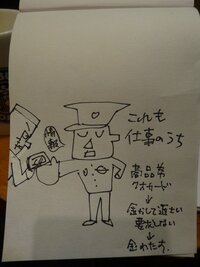 これも
仕事のうち
商品券
クオカード
↓
金かして返さい
要求しない
↓
金わたす